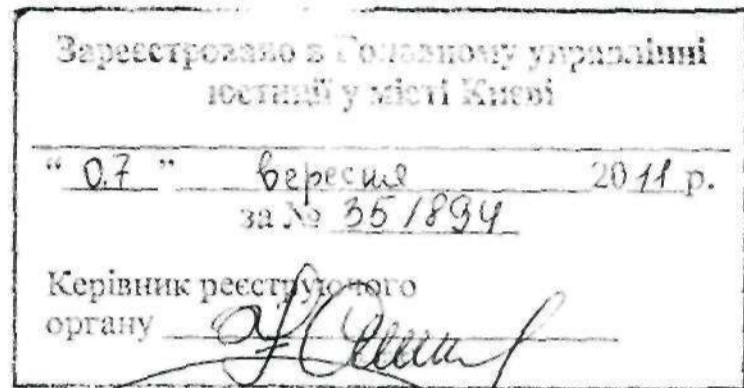 Зареєстровано в Головному управлінні
юстиції у місті Києві
“ 07 ” вересня 2011 р.
за № 35/894
Керівник реєструючого
органу